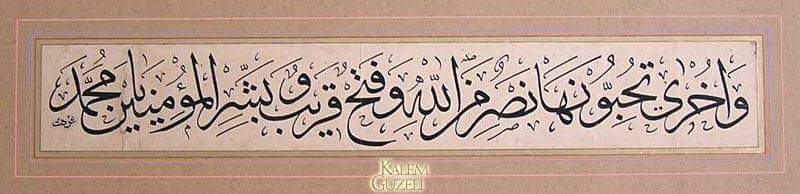 وَاُخْرٰى تُحِبُّونَهَا نَصْرٌ مِنَ اللّٰهِ وَفَتْحٌ قَرِيبٌ وَبَشِّرِ الْمُؤْمِنِينَ يَا مُحَمَّد
KALEM
GUZELI